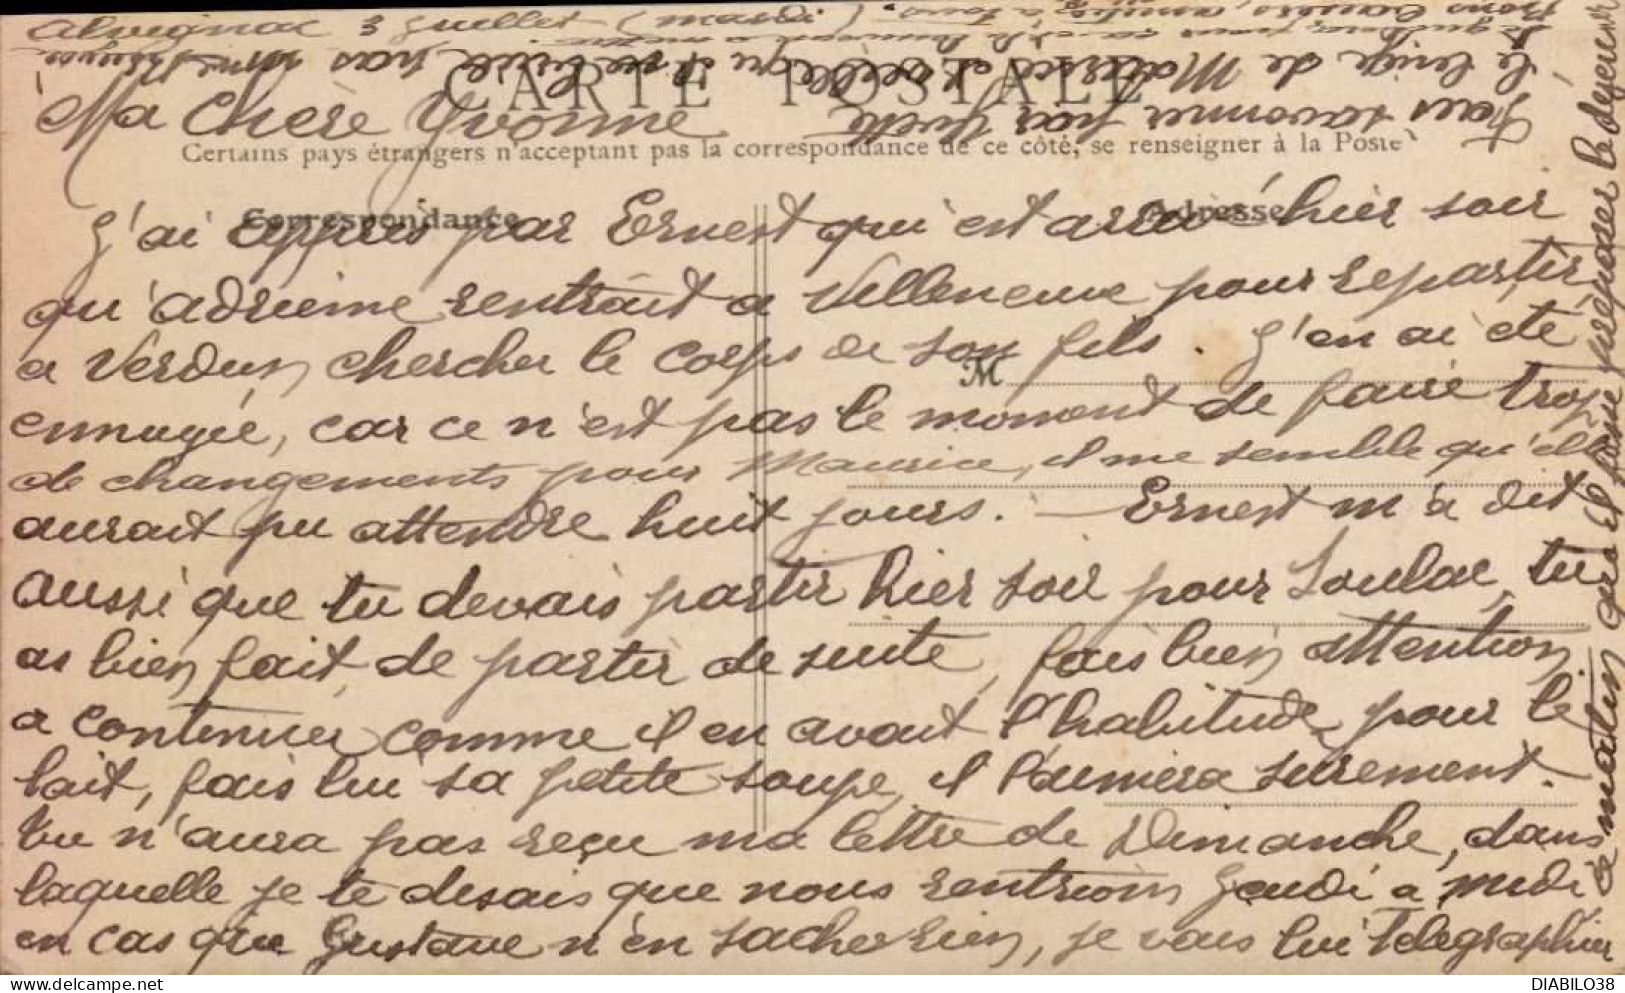 Alvignac 3 Juillet (mardi)
CARTE POSTALE
Ma Chère Yvonne
Certains pays étrangers n'acceptent pas la correspondance de ce côté, se renseigner à la Poste
Correspondance
Adresse
J'ai appris par Ernest qui est arrivé hier soir
qu'adrienne rentrait a Villeneuve pour repartir
a Verdun chercher le corps de son fils. J'en ai été
M
ennuyée, car ce n'est pas le moment de faire trop
de changements pour Maurice, il me semble qu'elle
aurait pu attendre huit jours. — Ernest m'a dit
aussi que tu devais partir hier soir pour Soulac, tu
as bien fait de partir de suite, fais bien attention
a continuer comme il en avait l'habitude, pour le
lait, fais lui sa petite soupe, il l'aimera surement.
tu n'aura pas reçu ma lettre de Dimanche, dans
laquelle je te disais que nous rentrions Jeudi a midi
en cas que Gustave n'en sache rien, je vais lui telegraphier
ce matin car il faut préparer le dejeuner
Fais savonner par Yvette
le linge de Maurice et celle qu'il ne lave pas
DIABILO38